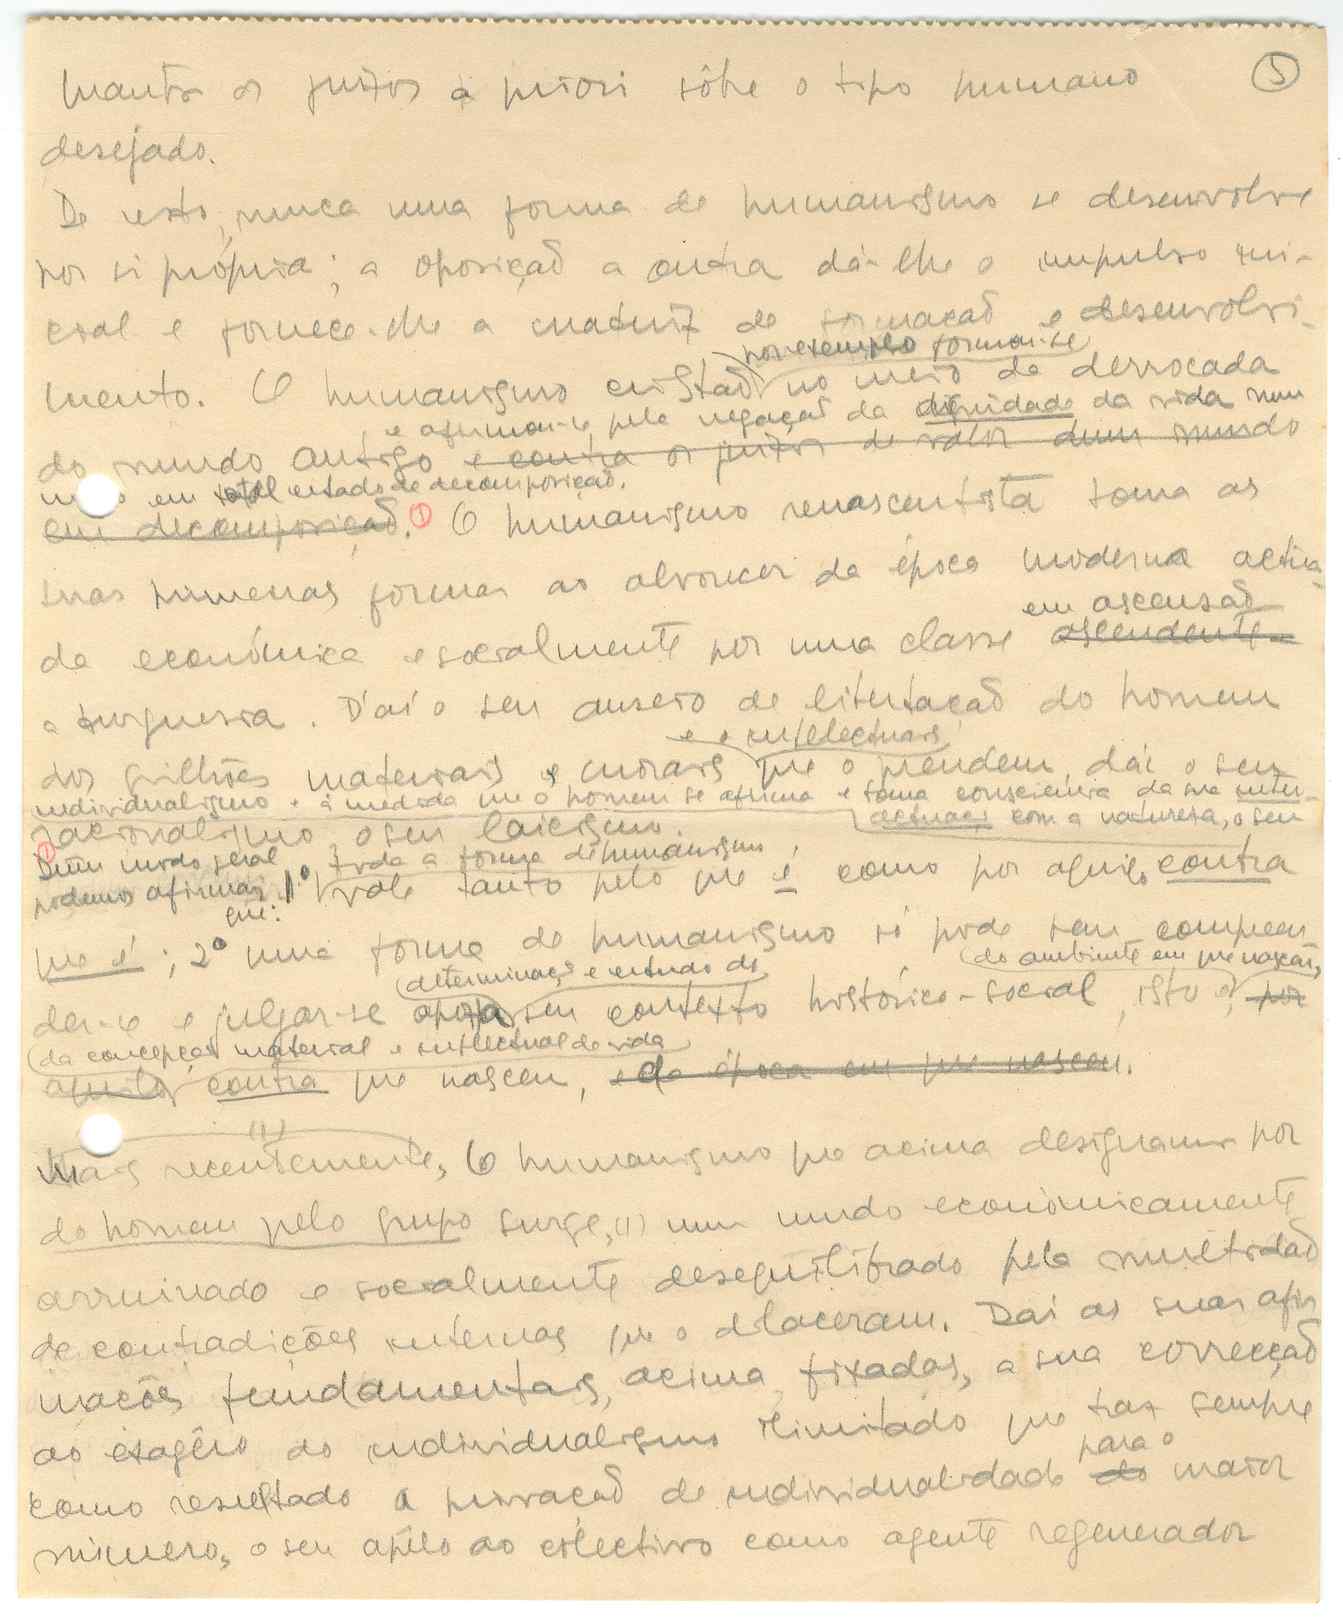 5
manter os juízos a priori sôbre o tipo humano
desejado.
De resto, nunca uma forma de humanismo se desenvolve
por si própria; a oposição a outra dá-lhe o impulso ini-
cial e fornece-lhe a matriz de formação e desenvolvi-
por exemplo formou-se
mento. O humanismo cristão no meio da derrocada
e afirmou-se pela negação da dignidade da vida num
do mundo antigo e contra os juízos de valor dum mundo
em total estado de decomposição.
em decomposição. ① O humanismo renascentista toma as
suas primeiras formas ao alvorecer da época moderna activa-
em ascensão
da económica e socialmente por uma classe ascendente
a burguesia. Daí o seu anseio de libertação do homem
e intelectuais
dos grilhões materiais e morais que o prendem, daí o seu
individualismo e à medida que o homem se afirma e toma consciência da sua inter-
actuação com a natureza, o seu
racionalismo o seu laicismo.
① Dum modo geral toda a forma de humanismo
podemos afirmar 1.º vale tanto pelo que é como por aquilo contra
que:
que é; 2º uma forma de humanismo só pode sem compreen
determinação e estudo do do ambiente em que nasceu,
der-se e julgar-se após seu contexto histórico-social, isto é, por
da concepção material e intelectual de vida
aquilo contra que nasceu, e da época em que nasceu.
(1)
Mais recentemente, O humanismo que acima designamos por
do homem pelo grupo surge, (1) num mundo económicamente
arruinado e socialmente desequilibrado pela multidão
de contradições internas que o dilaceram. Daí as suas afir
mações fundamentais, acima fixadas, a sua correcção
ao exagêro do individualismo ilimitado que traz sempre
para o
como resultado a privação de individualidade do maior
número, o seu apêlo ao colectivo como agente regenerador